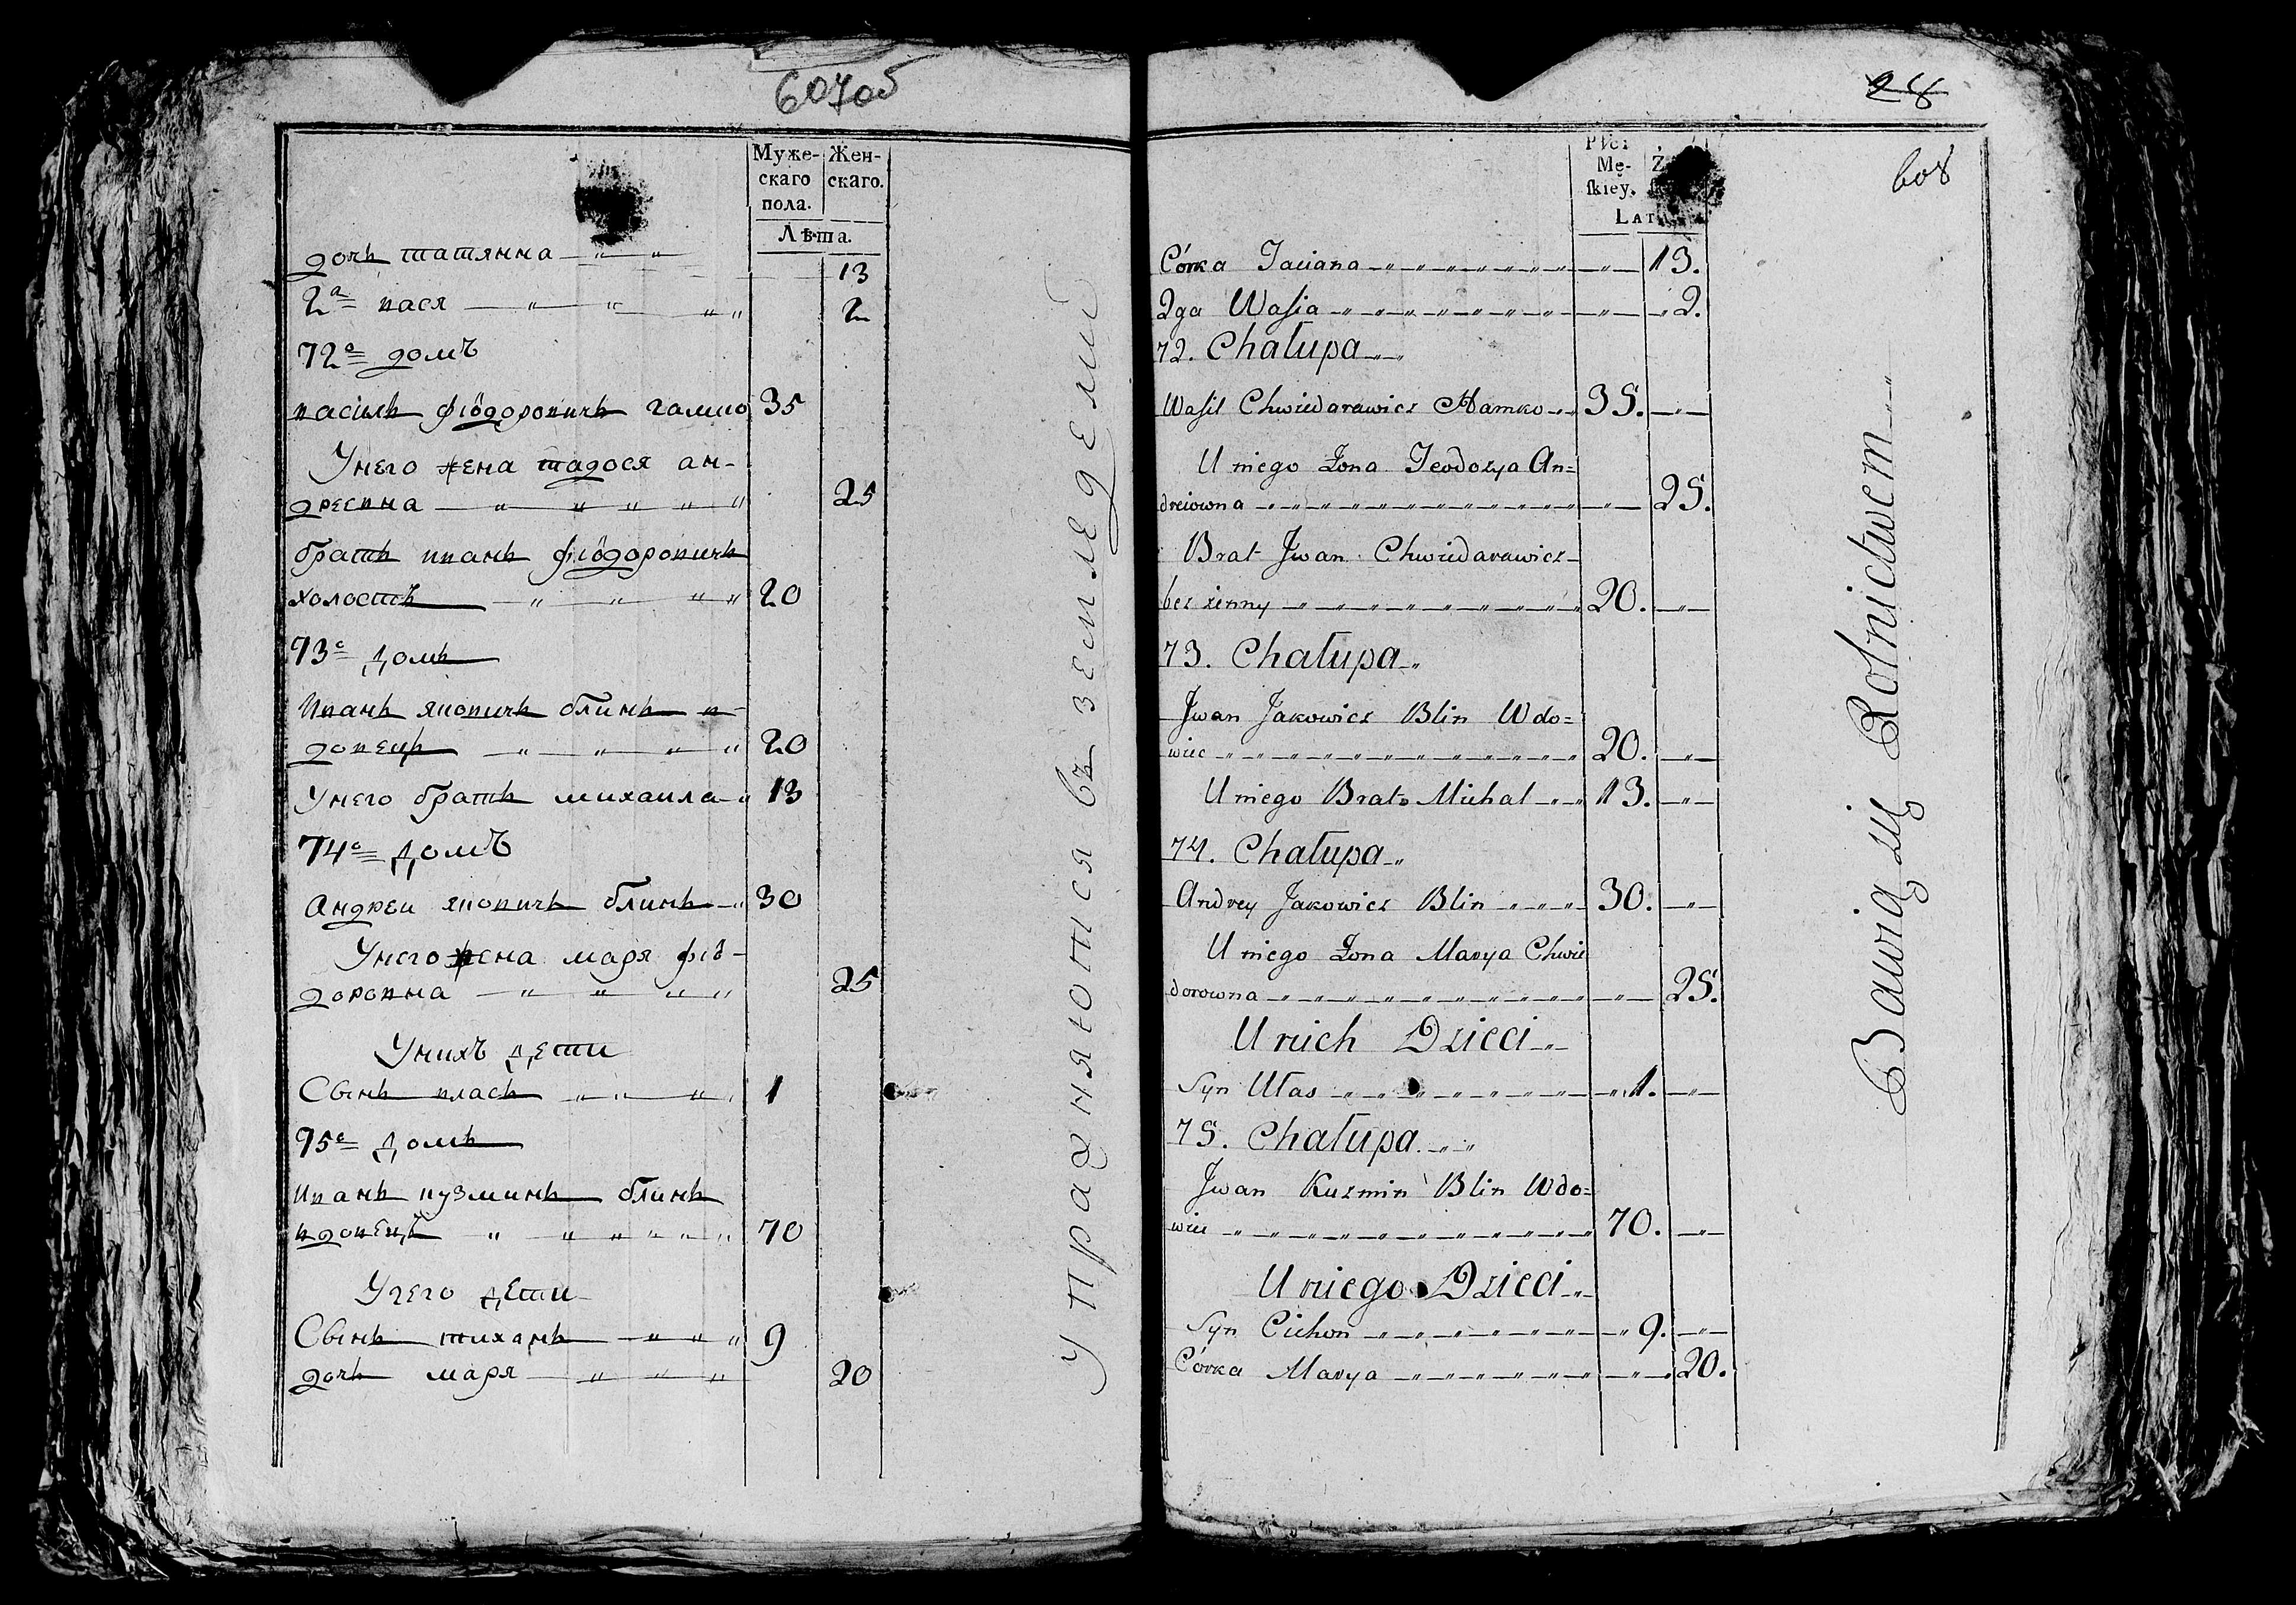 607об
Муже-
скаго
пола.
Жен-
скаго.
Лѣта.
дочь татянна 13
2а вася 2
72е домъ
василь фіôдоровичь гамко 35
Унего жена тадося ан-
дреевна 25
братъ иванъ фіôдоровичь
холостъ 20
73е домъ
Иванъ яковичь блинъ в-
довецъ 20
Унего братъ михаила 13
74е домъ
Андреи яковичь блинъ 30
Унего жена маря фіô-
доровна 25
Унихъ дети
Сынъ власъ 1
75е домъ
Иванъ кузминъ блинъ
вдовецъ 70
Унего дети
Сынъ тиханъ 9
дочь маря 20
Упражняютися въ земледелии
28
608
Płci
Mę-
ſkiéy.
LATA
Córka Taciana 13.
2ga Waſia 2.
72. Chałupa
Waſil Chwiedarawicz Hamko 35.
U niego Żona Teodozya An=
dreiowna 25.
Brat Jwan Chwiedarawicz
bez żenny 20.
73. Chałupa
Jwan Jakowicz Blin Wdo=
wiec 20.
U niego Brat Michał 13.
74. Chałupa
Andrey Jakowicz Blin 30.
U niego Żona Marya Chwie
dorowna 25.
U nich Dzieci
Syn Ułas 1.
75. Chałupa
Jwan Kuzmin Blin Wdo=
wiec 70.
U niego Dzieci
Syn Cichon 9.
Córka Marya 20.
Bawią się Rolnictwem